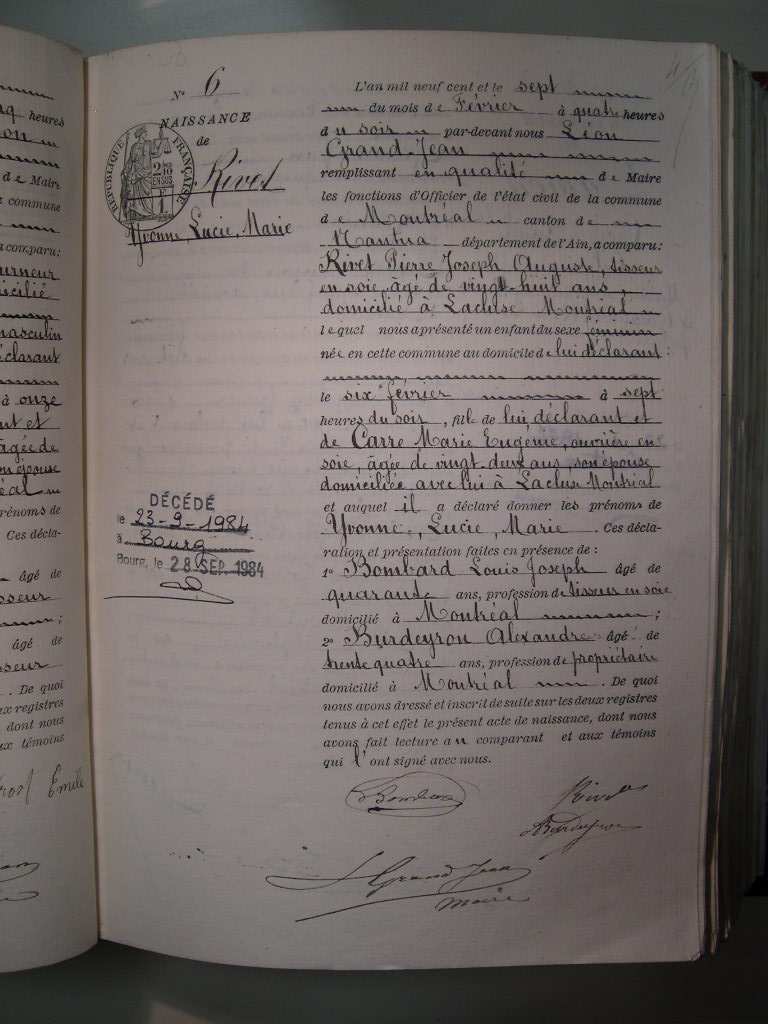 cinq heures
de Maire
commune
a comparu:
domicilié
masculin
déclarant
à onze
et
âgée de
son épouse
prénoms de
Ces décla-
âgé de
âgé de
. De quoi
registres
dont nous
aux témoins
Emile
N° 6
NAISSANCE
de
RÉPUBLIQUE FRANÇAISE
Rivet
Yvonne, Lucie, Marie
L'an mil neuf cent et le sept
du mois de Février à quatre heures
du soir par-devant nous Léon
Grand-Jean
remplissant en qualité de Maire
les fonctions d'Officier de l'état civil de la commune
de Montréal canton de
Nantua département de l'Ain, a comparu:
Rivet Pierre Joseph Auguste, tisseur
en soie, âgé de vingt-huit ans,
domicilié à Lacluse Montréal
lequel nous a présenté un enfant du sexe féminin
née en cette commune au domicile de lui déclarant:
le six février à sept
heures du soir, fille de lui déclarant et
de Carre Marie Eugénie, ouvrière en
soie, âgée de vingt-deux ans, son épouse
domiciliée avec lui à Lacluse Montréal
et auquel il a déclaré donner les prénoms de
Yvonne, Lucie, Marie. Ces décla-
ration et présentation faites en présence de:
1° Bombard Louis Joseph âgé de
quarante ans, profession de tisseur en soie
domicilié à Montréal ;
2° Burdeyron Alexandre âgé de
trente quatre ans, profession de propriétaire
domicilié à Montréal. De quoi
nous avons dressé et inscrit de suite sur les deux registres
tenus à cet effet le présent acte de naissance, dont nous
avons fait lecture au comparant et aux témoins
qui l'ont signé avec nous.
DÉCÉDÉ
le 23-9-1984
à Bourg
Bourg, le 28 SEP. 1984
Bombard
Rivet
Burdeyron
L Grand Jean
maire